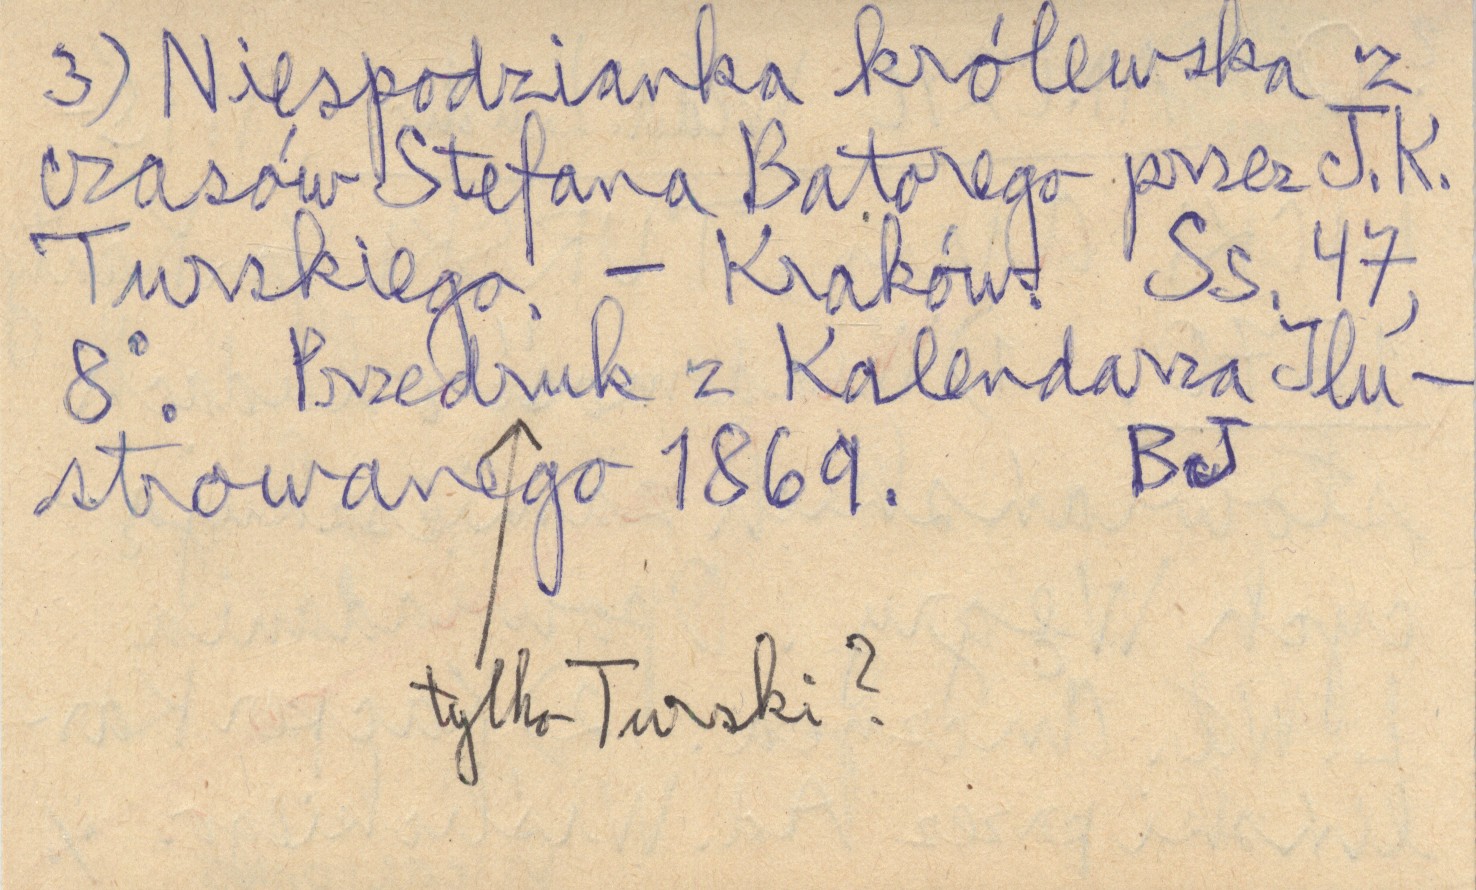 3) Niespodzianka królewska z
czasów Stefana Batorego przez J.K.
Turskiego. – Kraków. Ss. 47,
8°. Przedruk z Kalendarza Ilu-
strowanego 1869. BJ
tylko Turski?